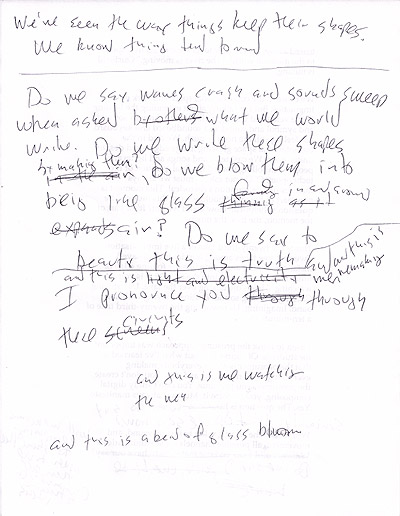 We've seen the way things keep their shapes.
We know things tend to
Do we say waves crash and sounds sweep
when asked by others what we would
write. Do we write these shapes
by making them?
in the air, Do we blow them into
being like glass in and around
air? Do we say to
beauty this is truth and this is
and this is light and electricity me remaking
I pronounce you through through
circuits
these screens
and this is me watching
the new
and this is a bead of glass bloom